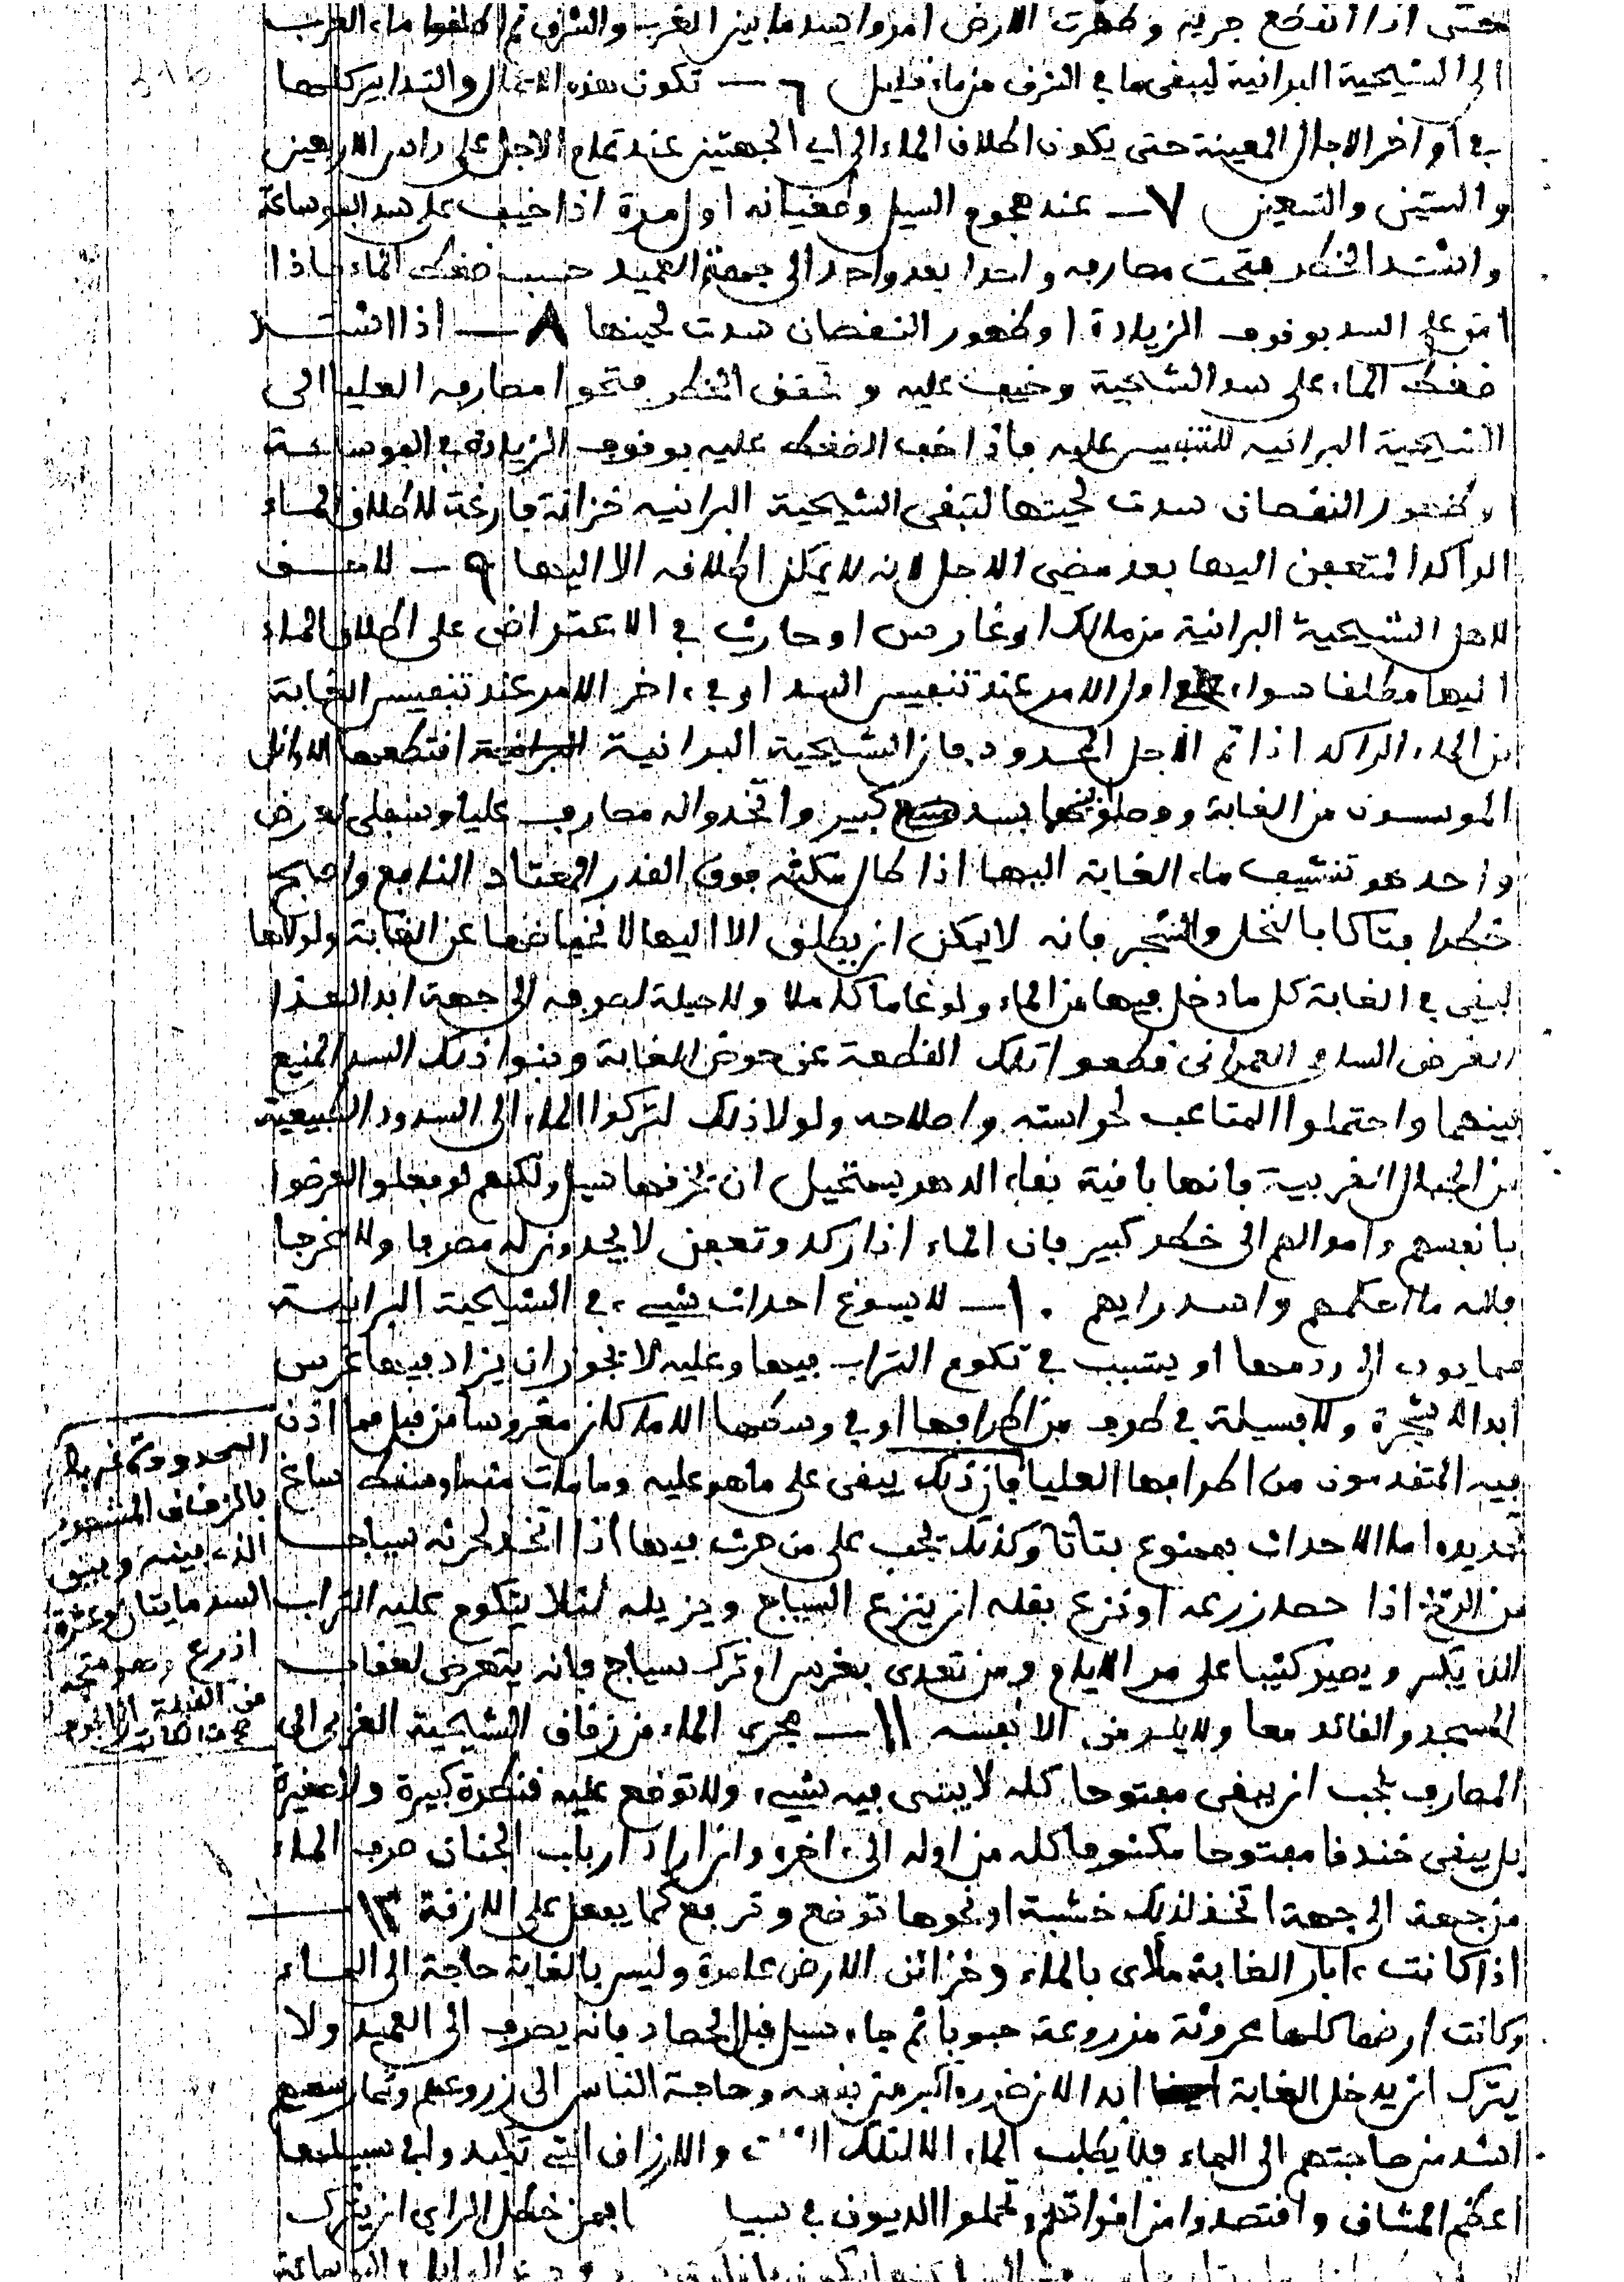 حتى اذا انقطع جريه وظهرت الارض امروا بسد ما بين الغرب والشرق ثم اطلقوا ماء الغرب
الى الشيحية البرانية ليبقى ما في الشرق من ماء قليل ٦ — تكون هذه الاعمال والتدابير كلها
في أواخر الاجال المعينة حتى يكون اطلاق الماء الى اي الجهتين عند تمام الاجل على راس الاربعين
والستين والتسعين ٧ — عند هجوم السيل وطغيانه اول مرة اذا خيف على سد البوساعة
واشتد الخطر فتحت مصارفه واحدا بعد واحد الى جهة العميد حسب ضغط الماء فاذا
امن على السد بوقوف الزيادة او ظهور النقصان سدت لحينها ٨ — اذا اشتد
ضغط الماء على سد الشيحية وخيف عليه وتحقق الخطر فتحوا مصارفه العليا الى
الشيحية البرانية للتنفيس عليه فاذا خف الضغط عليه بوقوف الزيادة في البوساعة
او ظهور النقصان سدت لحينها لتبقى الشيحية البرانية خزانة فارغة لاطلاق الماء
الراكد المتعفن اليها بعد مضي الاجل لانه لا يمكن اطلاقه الا اليها ٩ — لا حق
لاهل الشيحية البرانية من مالك او غارس او حارث في الاعتراض على اطلاق الماء
اليها مطلقا سواء اول الامر عند تنفيس السد او في ءاخر الامر عند تنفيس الغابة
من الماء الراكد اذا تم الاجل المحدود فان الشيحية البرانية اقتطعها الاوائل
المؤسسون من الغابة وفصلو بينهما بسد كبير واتخذوا له مصارف عليا وسفلى لغرض
واحد هو تنشيف ماء الغابة اليها اذا طال مكثه فوق القدر المعتاد النافع واصبح
خطرا فتاكا بالنخل والشجر فانه لا يمكن ان يطلق الا اليها لانخفاضها عن الغابة ولولاها
لبقي في الغابة كل ما دخل فيها من الماء ولو عاما كاملا ولا حيلة لصرفه الى جهة ابدا لهذا
الغرض السامي العمراني قطعوا تلك القطعة عن حوض الغابة وبنوا ذلك السد المنيع
بينهما واحتملوا المتاعب لحراسته واصلاحه ولولا ذلك لتركوا الماء الى السدود الطبيعية
من الجبال الغربية فانها باقية بقاء الدهر يستحيل ان يخرقها سيل ولكنهم لو فعلوا لعرضوا
بانفسهم واموالهم الى خطر كبير فان الماء اذا ركد وتعفن لا يجدون له مصرفا ولا مخرجا
فلله ما اعظمهم واسد رايهم ١٠ — لا يسوغ احداث شيء في الشيحية البرانية
مما يودي الى ردمها او يتسبب في تكوم التراب فيها وعليه لا يجوز ان يزاد فيها غرس
ابدا لا شجرة ولا فسيلة في طرف من اطرافها او في وسطها الا ما كان مغروسا من قبل مما اذن
فيه المتقدمون من اطرافها العليا فان ذلك يبقى على ما هو عليه وما مات منها وسقط ساغ
تجديده اما الاحداث فممنوع بتاتا وكذلك يجب على من حرث فيها اذا اتخذ لحرثه سياجا
من الدقل اذا حصد زرعه او نزع بقله ان ينزع السياج ويزيله لئلا يتكوم عليه التراب
الذي يكبر ويصير كثيبا على مر الايام ومن تعدى بغرس او ترك سياج فانه يتعرض لعقاب
المسجد والقائد معا ولا يلومن الا نفسه ١١ — مجرى الماء من زقاق الشيحية الغربي الى
المصارف يجب ان يبقى مفتوحا كله لا يبنى فيه شيء ولا توضع عليه قنطرة كبيرة ولا صغيرة
بل يبقى خندقا مفتوحا مكشوفا كله من اوله الى ءاخره وان اراد ارباب الجنان صرف الماء
من جهة الى جهة اتخذ لذلك خشبة او نحوها توضع وترفع كما يفعل على الازقة ١٢ —
اذا كانت ءابار الغابة ملأى بالماء وخزائن الارض عامرة وليس بالغابة حاجة الى الماء
وكانت ارضها كلها محروثة مزروعة حبوبا ثم جاء سيل قبل الحصاد فانه يصرف الى العميد ولا
يترك ان يدخل الغابة ابدا لان ضرره اكبر من نفعه وحاجة الناس الى زروعهم وثمارهم
اشد من حاجتهم الى الماء فلا يطلب الماء الا لتلك والارزاق التي تكبدوا في سبيلها
اعظم المشاق واقتصدوا من اقواتهم وتحملوا الديون في سبيا افمن خطل الراي ان يترك
المحدود غربا
بالزقاق المشهور
الذي بينه وبين
السد مايتان وعشرة
اذرع وهو متجه
من القبلة الى